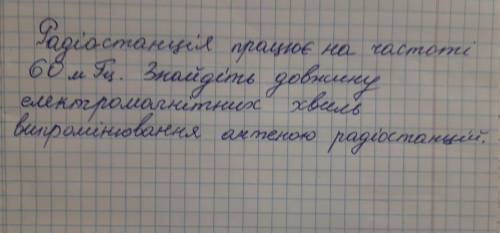 Радіостанція працює на частоті
60 мГц. Знайдіть довжину
електромагнітних хвиль
випромінювання антеною радіостанцій.